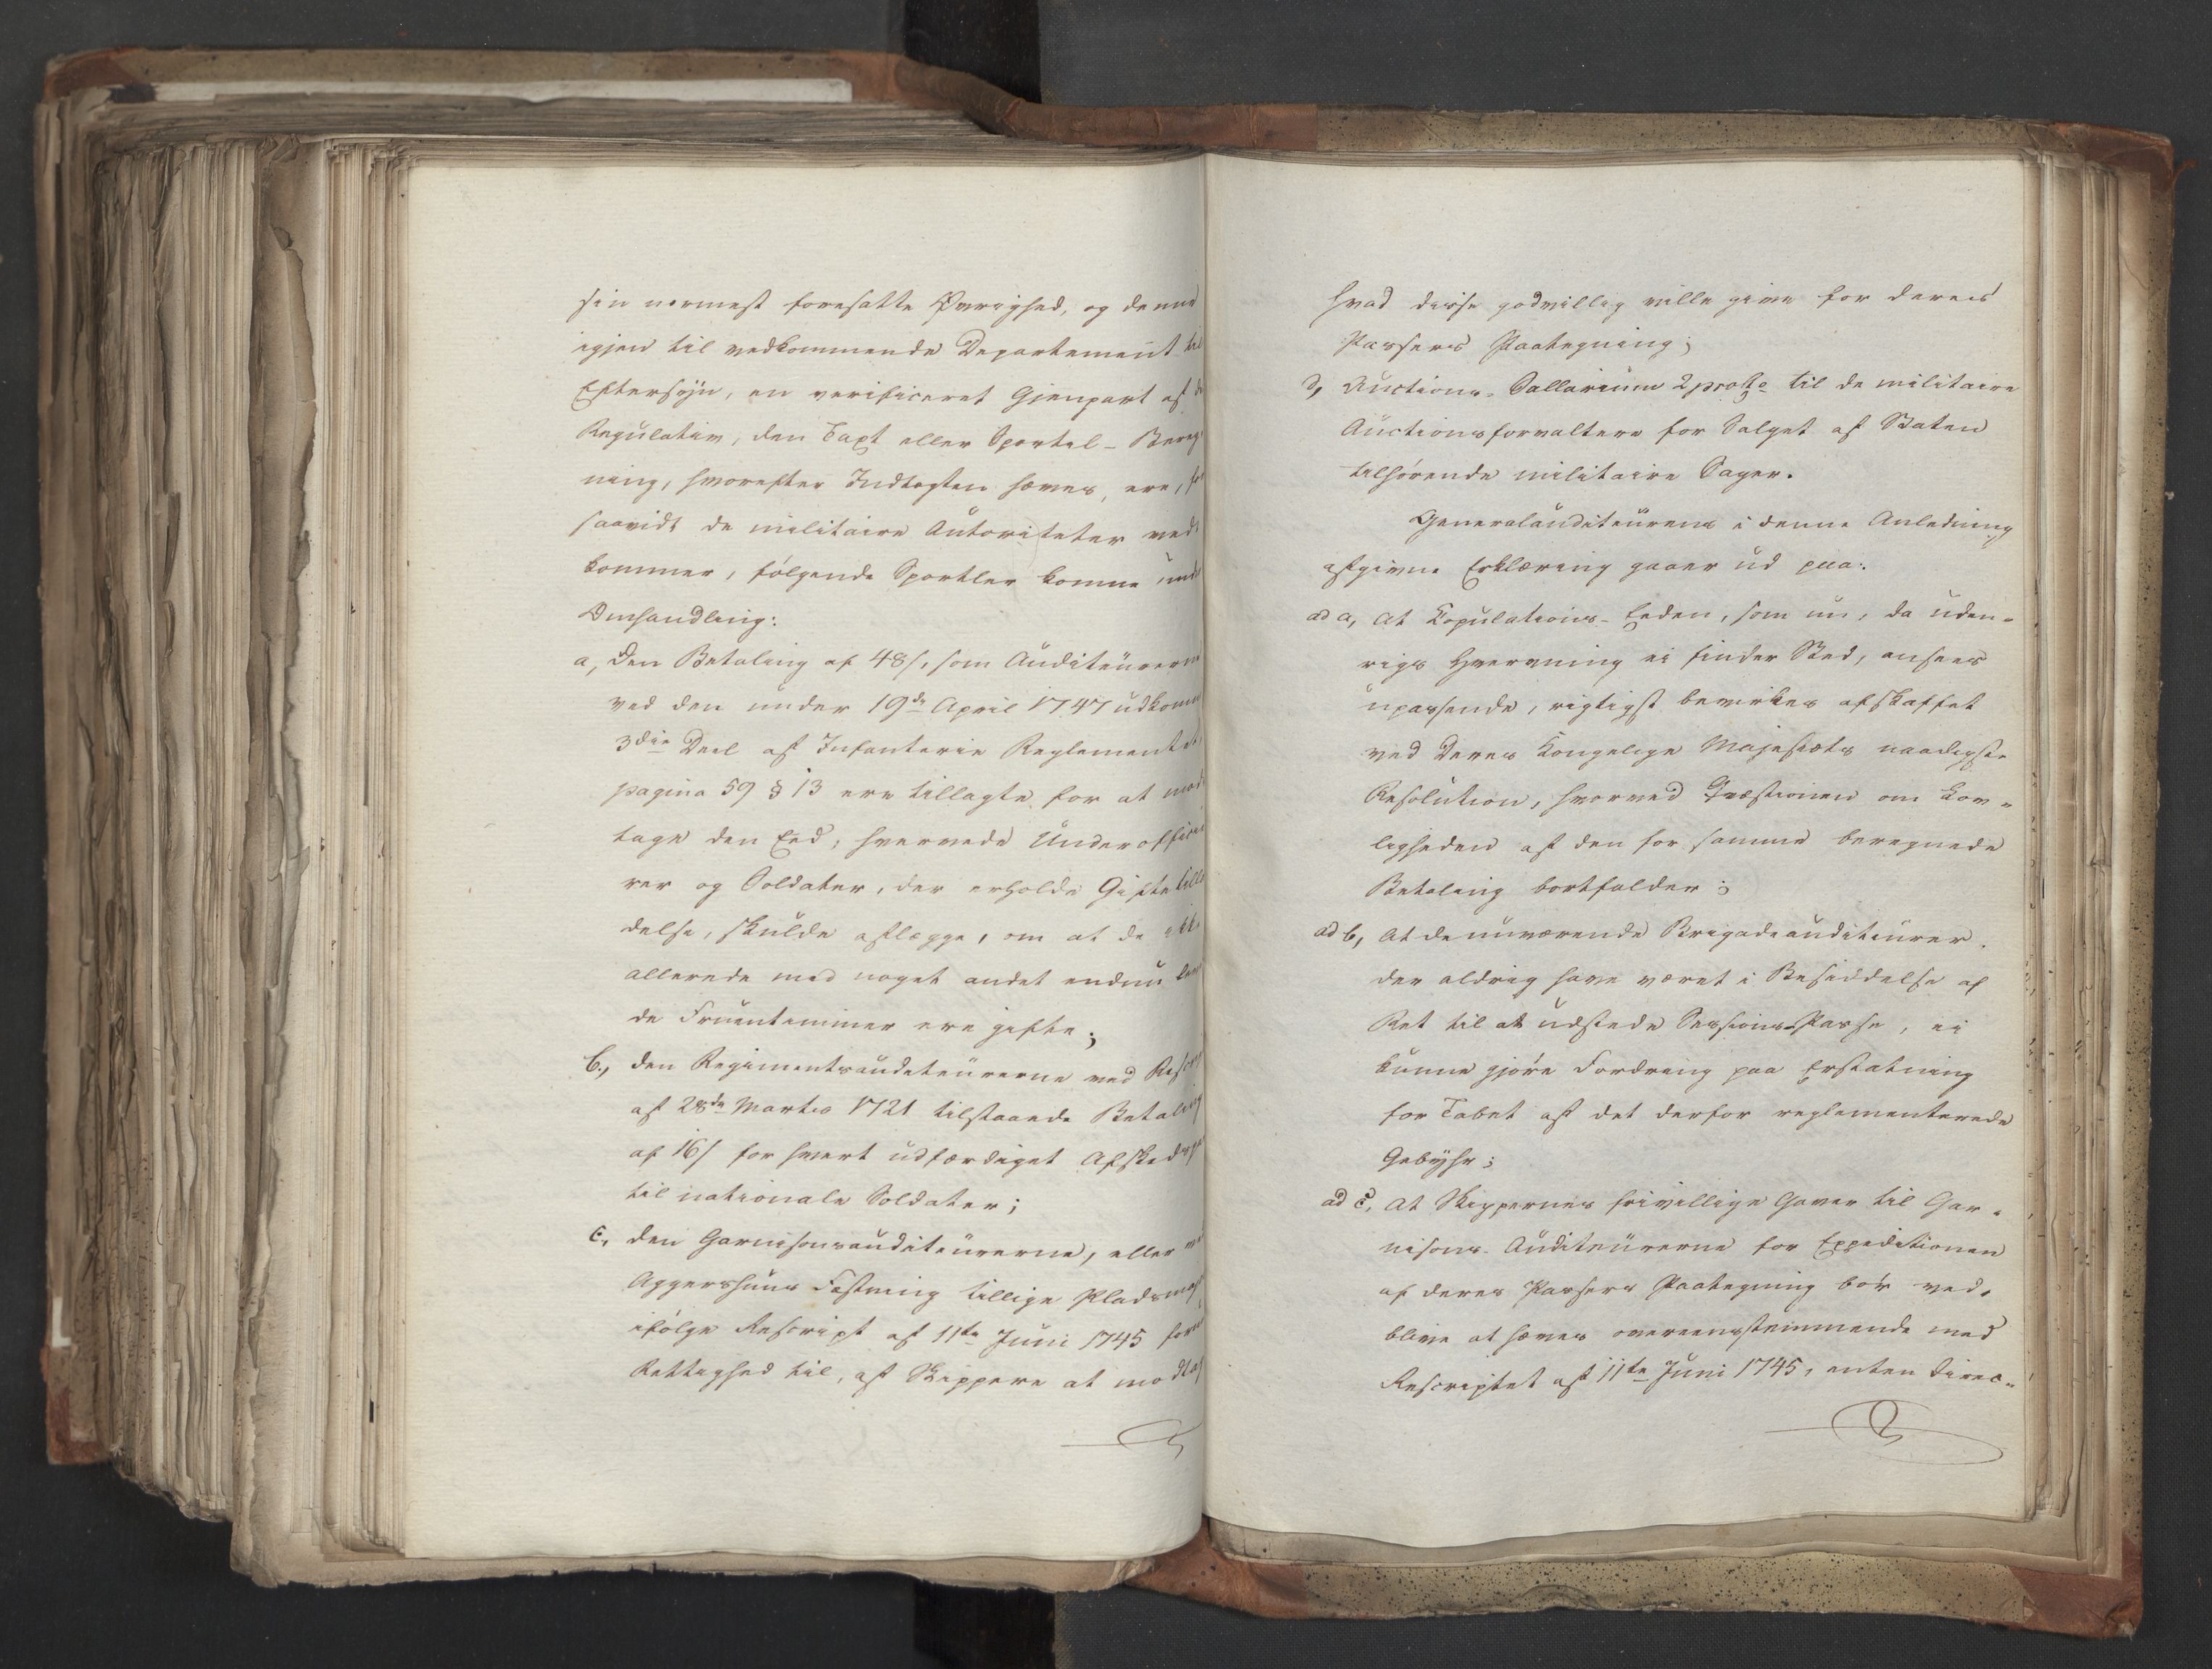 sin nærmest foresatte Øvrighed, og denne
igjen til vedkommende Departement til
Eftersyn, en verificeret Gjenpart af
Regulativ, den Taxt eller Sportel-Bereg-
ning, hvorefter Indtægten hæves, ere, for
saavidt de militaire Autoriteter ved-
kommer, følgende Sportler komne under
Omhandling:
a, Den Betaling af 48 s, som Auditeurerne
ved den under 19de April 1747 udkomne
3die Deel af Infanterie Reglementet
pagina 59 § 13 ere tillagte for at mod-
tage den Eed, hvervede Underoffice-
rer og Soldater, der erholde Giftetilla-
delse, skulde aflægge, om at de ikke
allerede med noget andet endnu leven-
de Fruentimmer ere gifte;
b., den Regimentsauditeurerne ved Rescript
af 28de Martii 1721 tilstaaede Betaling
af 16 s for hvert udfærdiget Afskedspas
til nationale Soldater;
c, den Garnisonsauditeurerne, eller ved
Aggershuus Fæstning tillige Pladsmajoren
ifølge Rescript af 11te Juni 1745
Rettighed til, af Skippere at modtage
hvad disse godvillig ville give for deres
Passers Paategning;
d, Auctions-Sallarium 2 procto til de militaire
Auctionsforvaltere for Salget af Staten
tilhørende militaire Sager.
Generalauditeurens i denne Anledning
afgivne Erklæring gaaer ud paa:
ad a, at Copulations-Eeden, som nu, da uden-
rigs Hververing ei finder Sted, ansees
upassende, rigtigst bevirkes afskaffet
ved Deres Kongelige Majestæts naadigste
Resolution, hvorved Qvæstionen om Lov-
ligheden af den for samme beregnede
Betaling bortfalder;
ad b, At de nuværende Brigadeauditeurer,
der aldrig have været i Besiddelse af
Ret til at udstede Sessions-Passe, ei
kunne gjøre Fordring paa Erstatning
for Tabet af det derfor reglementerede
Gebyhr;
ad c, At Skippernes frivillige Gaver til Gar-
nisons-Auditeurerne for Expeditionen
af deres Passers Paategning bør ved-
blive at hæves overeensstemmende med
Rescriptet af 11te Juni 1745, enten direc-